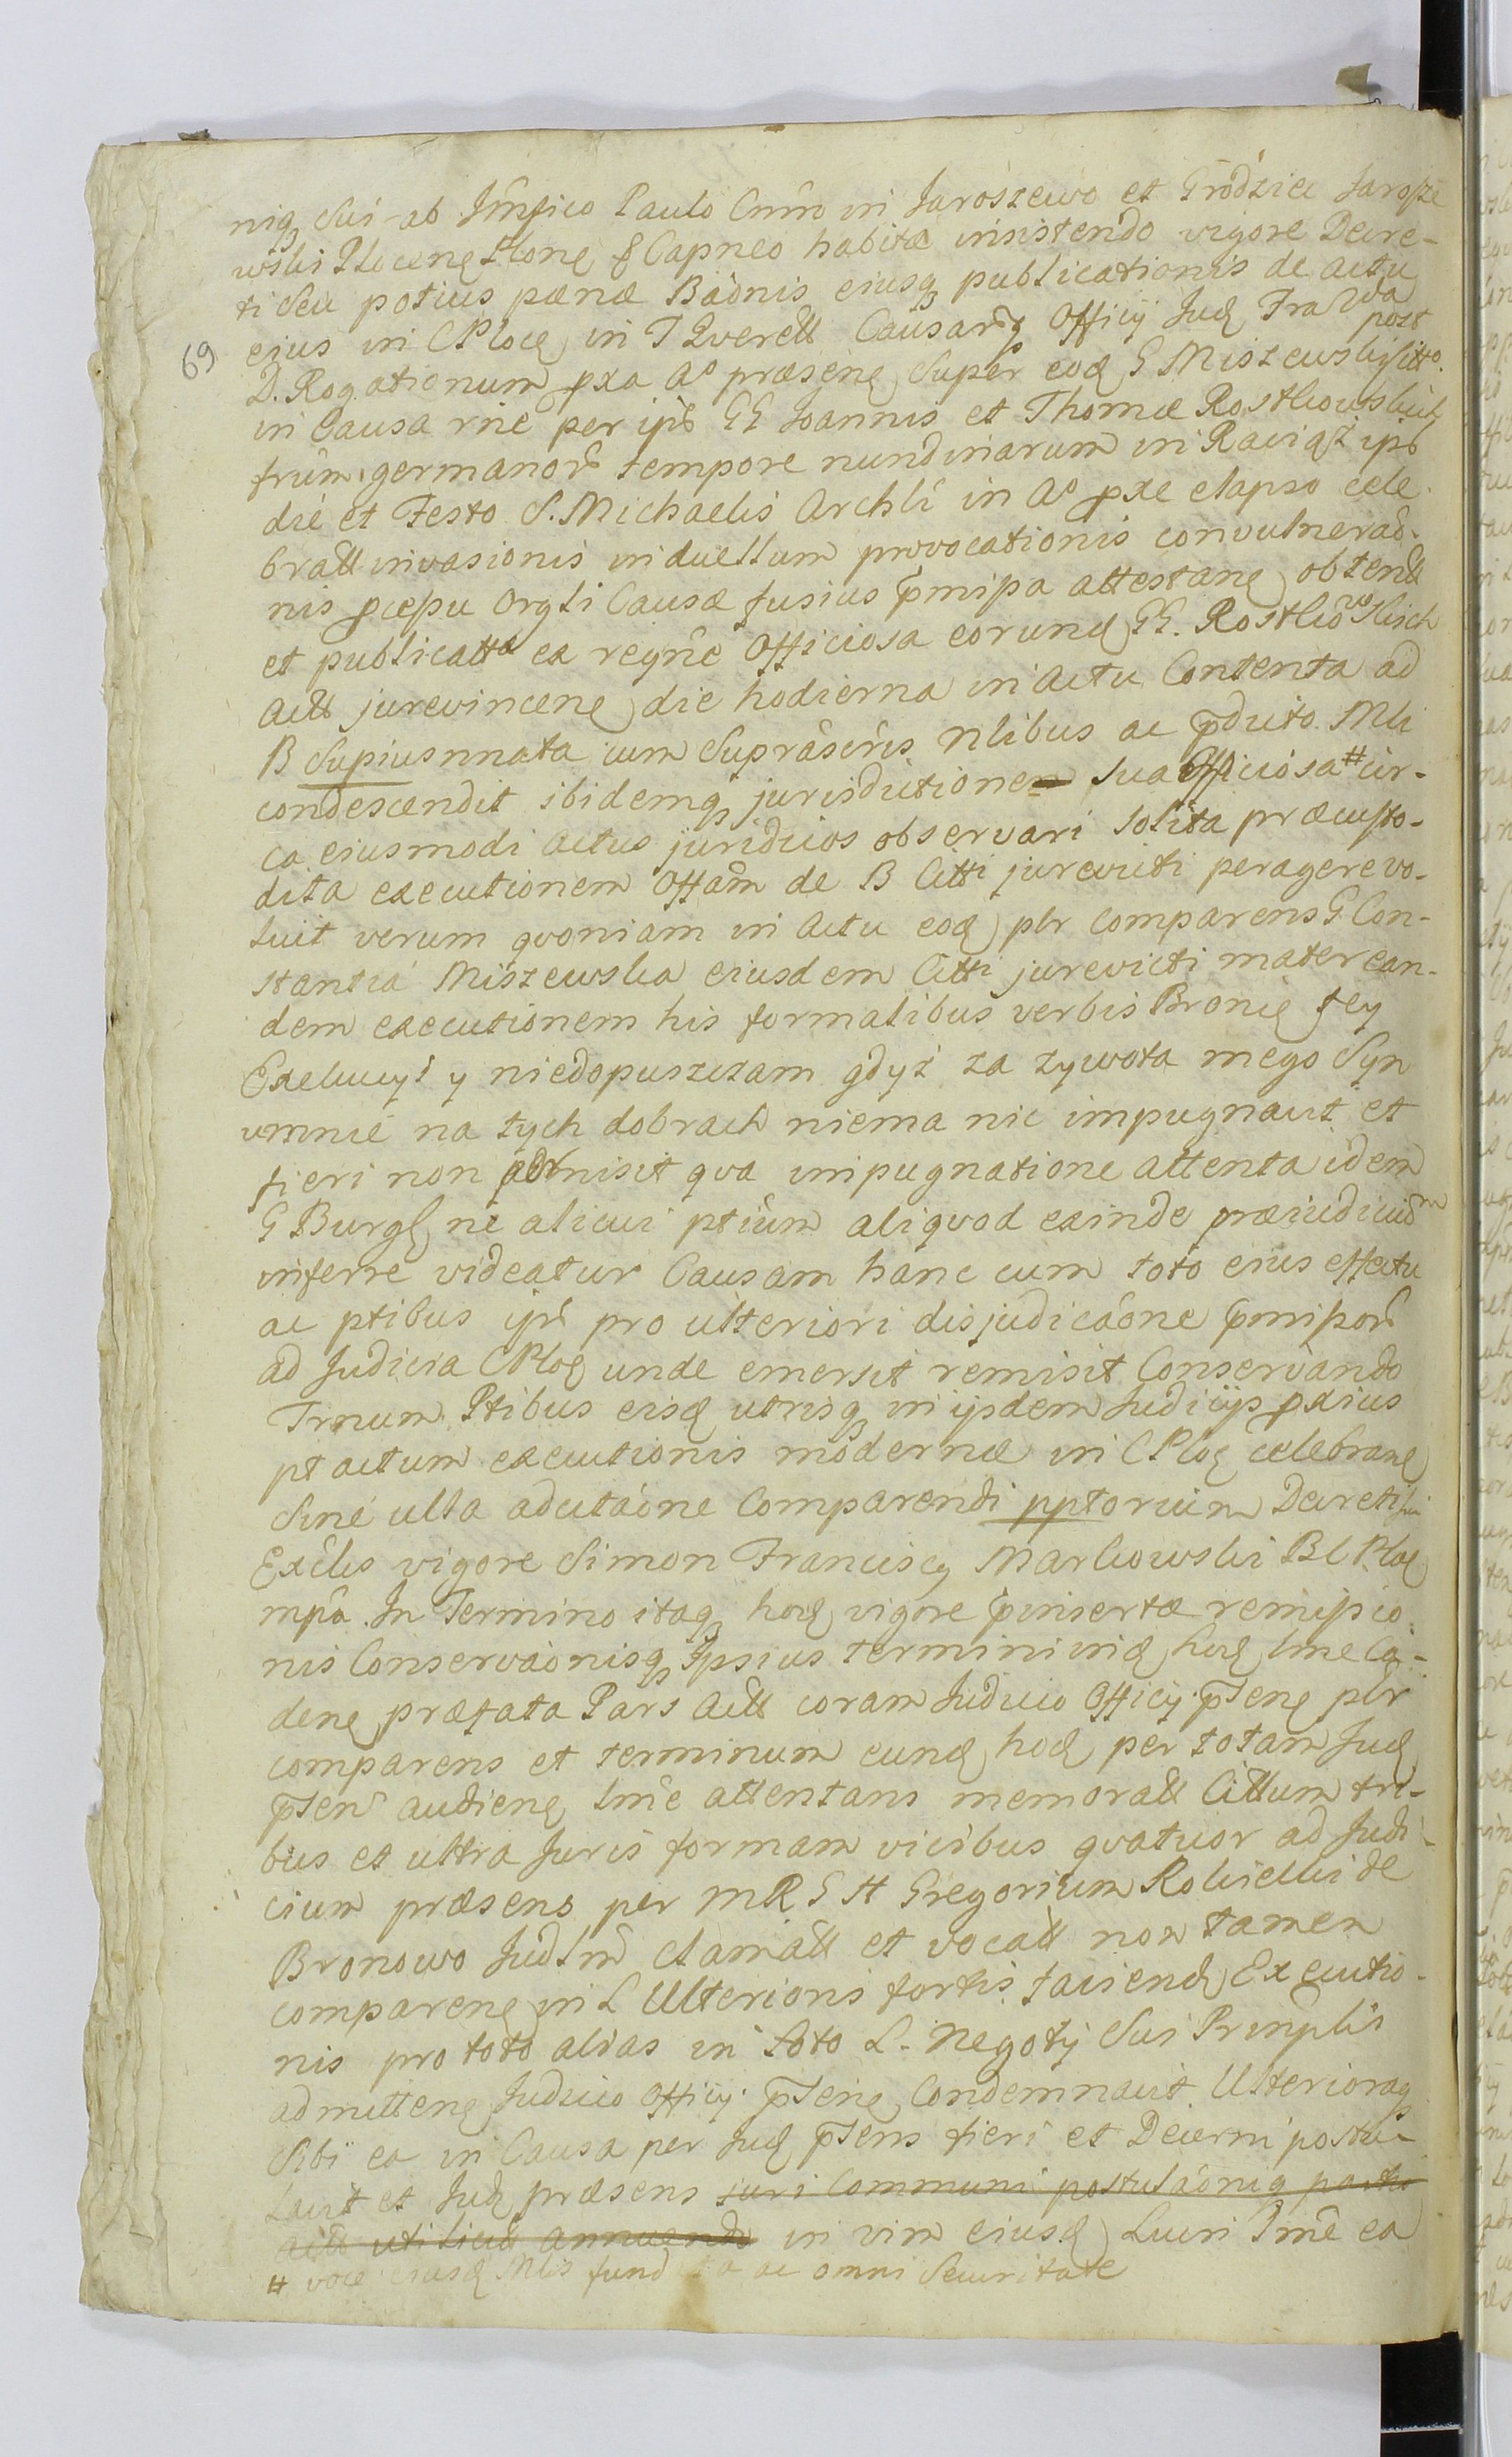 niq sui ab Jmfico Paulo Cnro in Jaroszewo et Grodzice Jarosze
wski Plocens Plonen & Capneo habitæ insistendo vigore Decre-
ti seu potius pænæ Baonis eiusq publicationis de actu
eius in CPloc in T Qverell Causarq Officij Jud Fra 2da
69 D. Rogationum pxa Ao præsenc super eod G Miszewski Citto. post
in Causa rne per ips GG Joannis et Thomæ Rostkowskich
frum germanor tempore nundinarum in Raciąż ips
die et Festo S. Michaelis Archli in Ao pxe elapso cele-
brall invasionis in duellum provocationis convulnerao-
nis pcepu Orgli Causæ fusius pmipa attestanc obtent
et publicatta ex reqne Officiosa eorund GG. Rostkowskich
Actt jurevincenc die hodierna in Actu Contenta ad
B supius nnata cum suprascris Nlibus ac pducto Mli
condescendit ibidemq jurisdictione sua Officiosa # cir-
ca eiusmodi actus juridicos observari solita præcusto-
dita executionem Offam de B Citti jurevicti peragere vo-
luit verum qvoniam in Actu eod plr comparens G Con-
stantia Miszewska eiusdem Citti jurevicti mater ean-
dem executionem his formalibus verbis Bronię tey
Exekucyi y niedopuszczam gdyż za zywota mego Syn
umnie na tych dobrach niema nic impugnavit et
fieri non admisit qva impugnatione attenta idem
G Burgs ne alicui ptium aliqvod exinde præiudicium
inferre videatur Causam hanc cum toto eius effectu
ac ptibus ips pro ulteriori disjudicaone pmipor
ad Judicia CPloc unde emersit remisit Conservando
Trnum Ptibus eisd utrisq in ijsdem Judicijs pxius
pt actum executionis modernæ in CPloc celebranc
sine ulla adcitaone Comparendi pptorium Decreti sui
Exclis vigore Simon Franciscq Markowski BC Ploc
mpa. In Termino itaq hod vigore pinsertæ remissio
nis Conservaonisq Ipsius termini ind hod lme Ca-
denc præfata Pars Actt coram Judicio Officij pTenc plr
comparens et terminum eund hod per totam Jud
pTen audienc lme attentans memorall Cittum tri-
bus et ultra Juris formam vicibus qvatuor ad Judi-
cium præsens per M R G H Gregorium Rokicki de
Bronowo Judlm clamatt et vocatt non tamen
comparenc in L Ulterioris fortis faciend Executio-
nis pro toto alias in toto L. Negotij Sui Prinplis
admittenc Judicio Officij pTenc Condemnavit. Ulterioraq
Sibi ea in Causa per Jud pTens fieri et Decerni postu-
lavit et Jud præsens juri Communi postulaoniq partis
actt uti licit annuendo in vim eiusd Lucri Tme ea
# voce eiusd Mlis fund ta ac omni Securitate